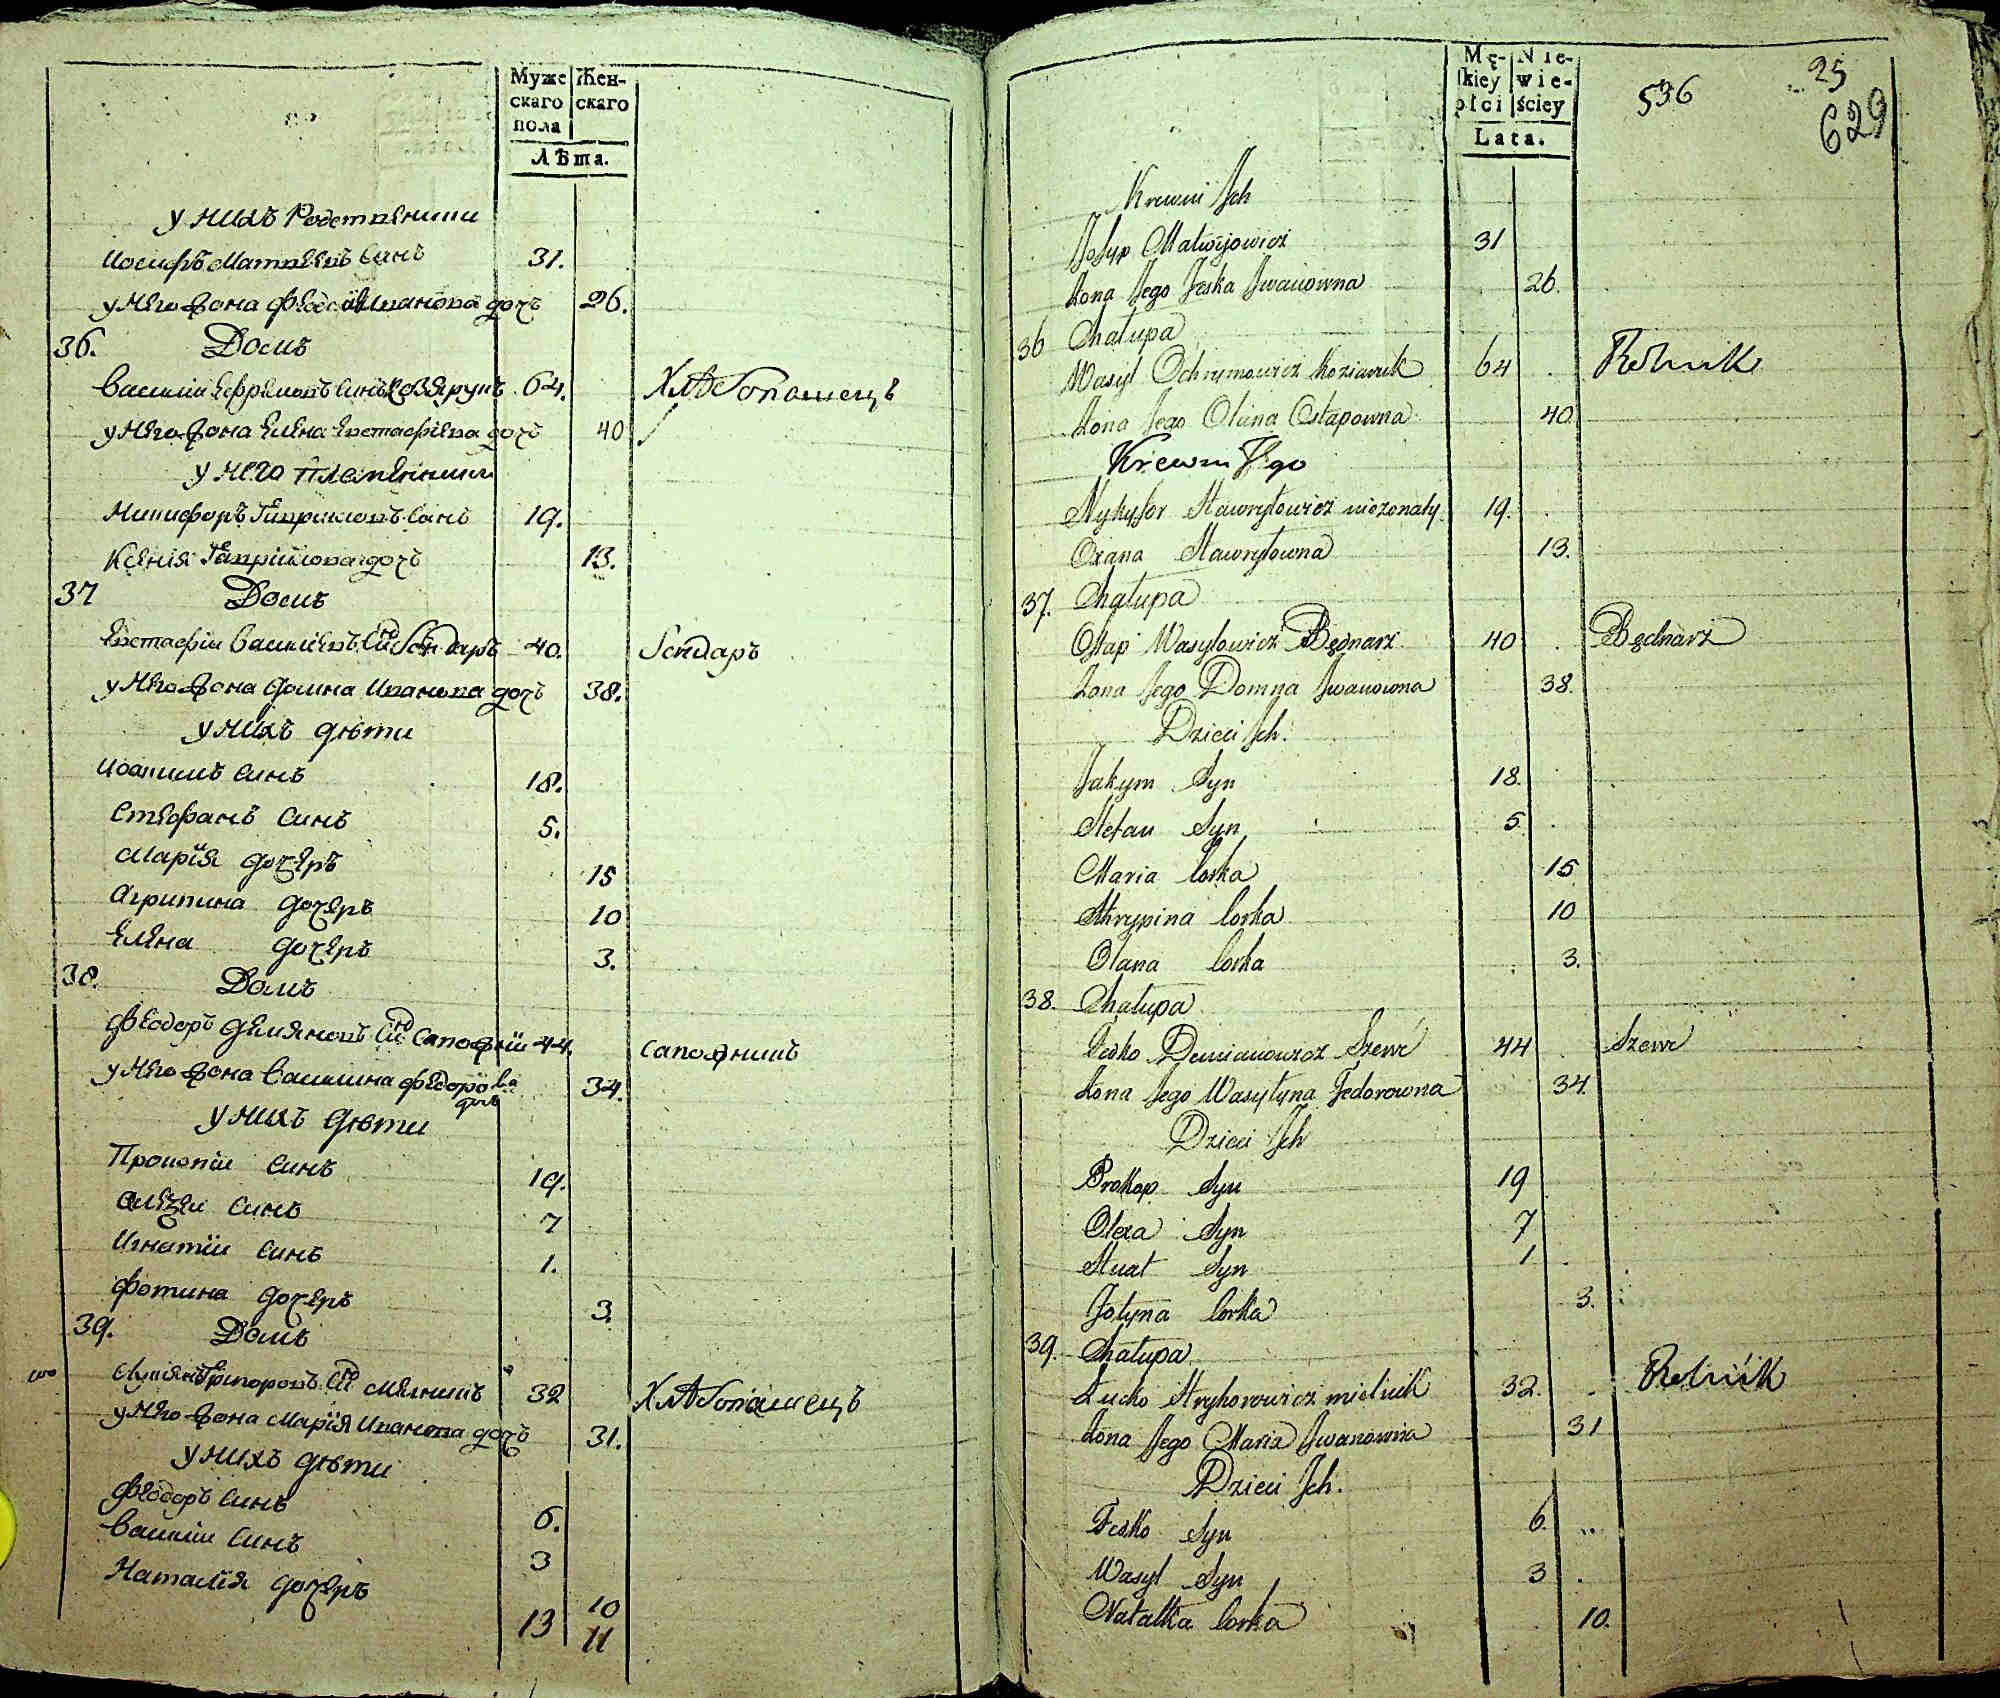 Муже Жен-
скаго скаго
пола
Лѣта.
у нихъ Родственники
Иосифъ Матвѣевъ Синъ 31.
у Него Жона Феодосия Иванова дочъ 26.
36. Домъ
Василии Ефремовъ Синъ Козярукъ 64. Хлѣбопашецъ
у Него Жона Елена Евстафіева дочъ 40
у него племѣнники
Никифоръ Гавриловъ Синъ 19.
Ксенія Гаврилова дочъ 13.
37 Домъ
Евстафии Василіевъ Сн҃ъ Бондаръ 40. Бондаръ
у Него Жона Домна Иванова дочъ 38.
у нихъ дѣти
Иоакимъ Синъ 18.
Стефанъ Синъ 5.
Мария дочеръ 15
Агрипина дочеръ 10
Елена дочеръ 3.
38. Домъ
Феодоръ Демяновъ Сн҃ъ Сапожніи 44. Сапожникъ
у Него Жона Василина Федорова дочъ 34.
у нихъ Дѣти
Прокопіи Синъ 19.
Алеѯеи Синъ 7
Игнатіи Синъ 1.
Фотина дочеръ 3.
39. Домъ
Лукіянъ Григоровъ Сн҃ъ Мелникъ 32 Хлѣбопашецъ
у Него Жона Марія Иванова дочъ 31.
у нихъ дѣти
Феодоръ Синъ 6.
Василіи Синъ 3
Наталія дочеръ 10
13 11
Mę- Nie-
skiey wie-
płci ściey
Lata.
536
25
629
Krewni Jch
Josyp Matwijowicz 31
Żona Jego Feska Jwanowna 26.
36 Chałupa
Wasyl Ochrymowicz Koziaruk 64 Rolnik
Żona Jego Olena Ostapowna 40.
Krewni Jego
Nykyfor Hawryłowicz nieżonaty 19.
Oxana Hawryłowna 13.
37. Chałupa
Ostap Wasylowicz Będnarz 40 Będnarz
Żona Jego Domna Jwanowna 38.
Dzieci Jch.
Jakym Syn 18.
Stefan Syn 5
Maria Corka 15
Ahrypina Corka 10
Olana Corka 3.
38. Chałupa
Fedko Demianowicz Szewc 44 Szewc
Żona Jego Wasyłyna Fedorowna 34.
Dzieci Jch
Prokop Syn 19
Olexa Syn 7
Hnat Syn 1
Fotyna Corka 3.
39. Chałupa
Łucko Hryhorowicz mielnik 32. Rolnik
Żona Jego Maria Jwanowna 31
Dzieci Jch.
Fedko Syn 6.
Wasyl Syn 3
Natałka Corka 10.